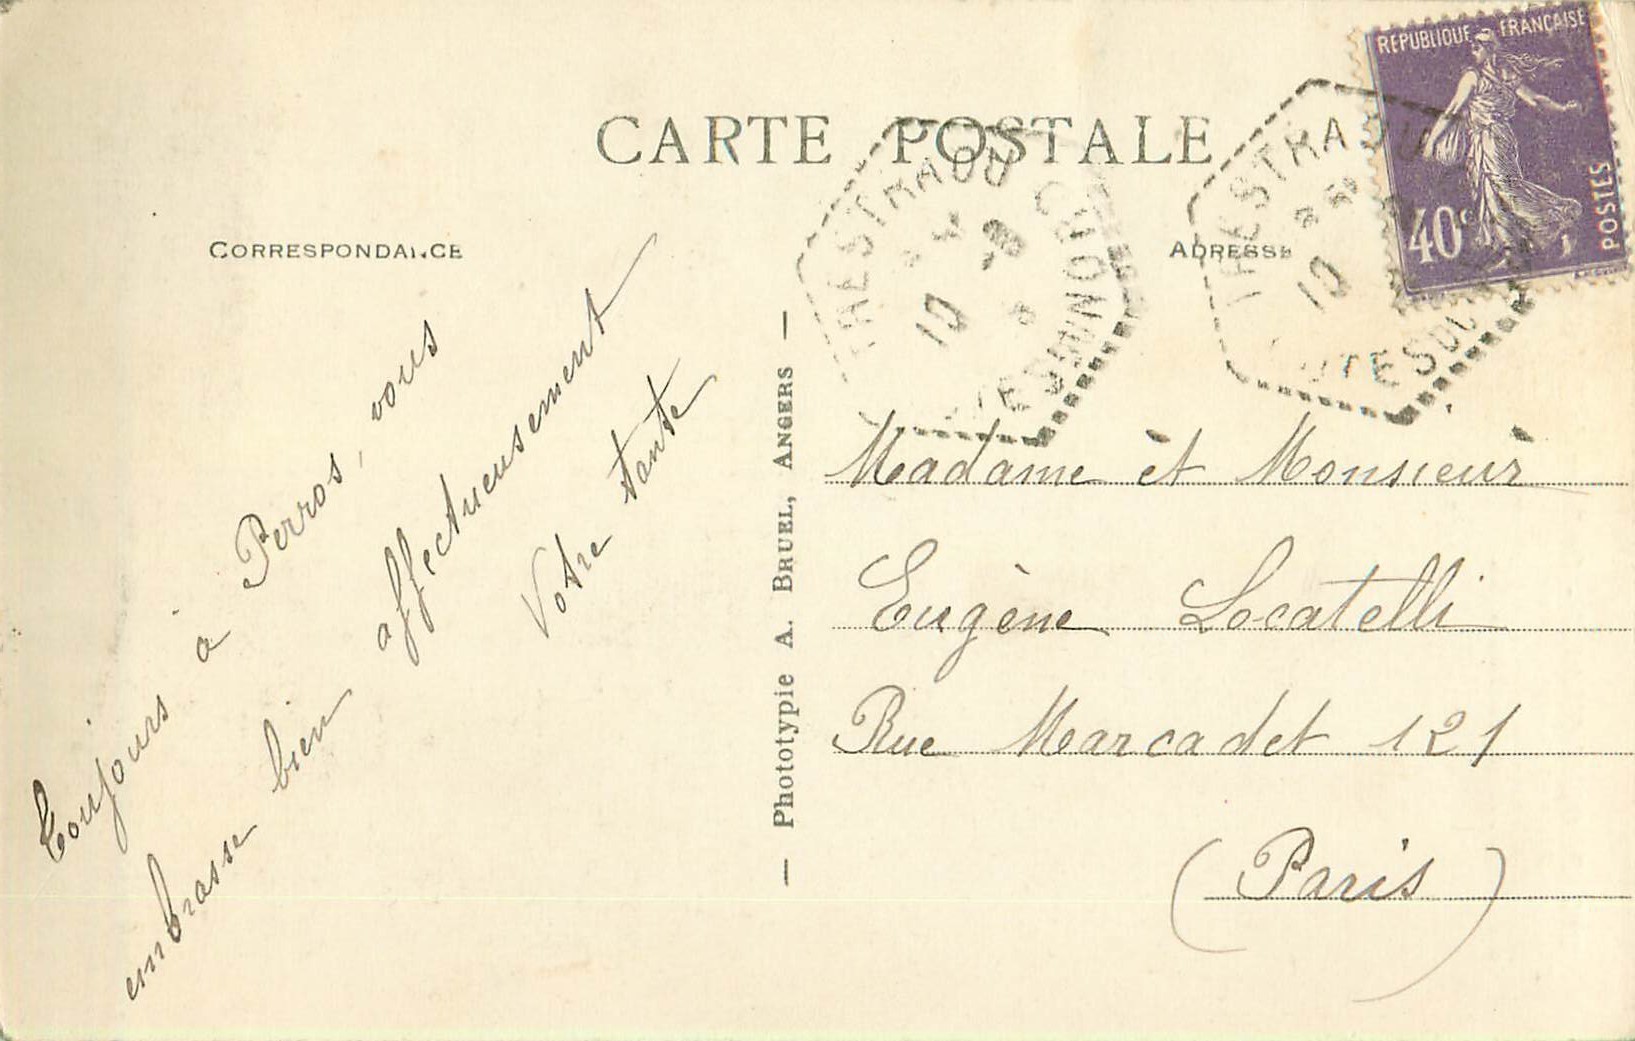 CARTE POSTALE
CORRESPONDANCE
ADRESSE
REPUBLIQUE FRANÇAISE
40c
POSTES
TRESTRAOU
10 -8
CÔTES DU NORD
TRESTRAOU
10
CÔTES DU
Toujours à Perros, vous
embrasse bien affectueusement
Votre tante
— Phototypie A. Bruel, Angers —
Madame et Monsieur
Eugène Locatelli
Rue Marcadet 121
(Paris)